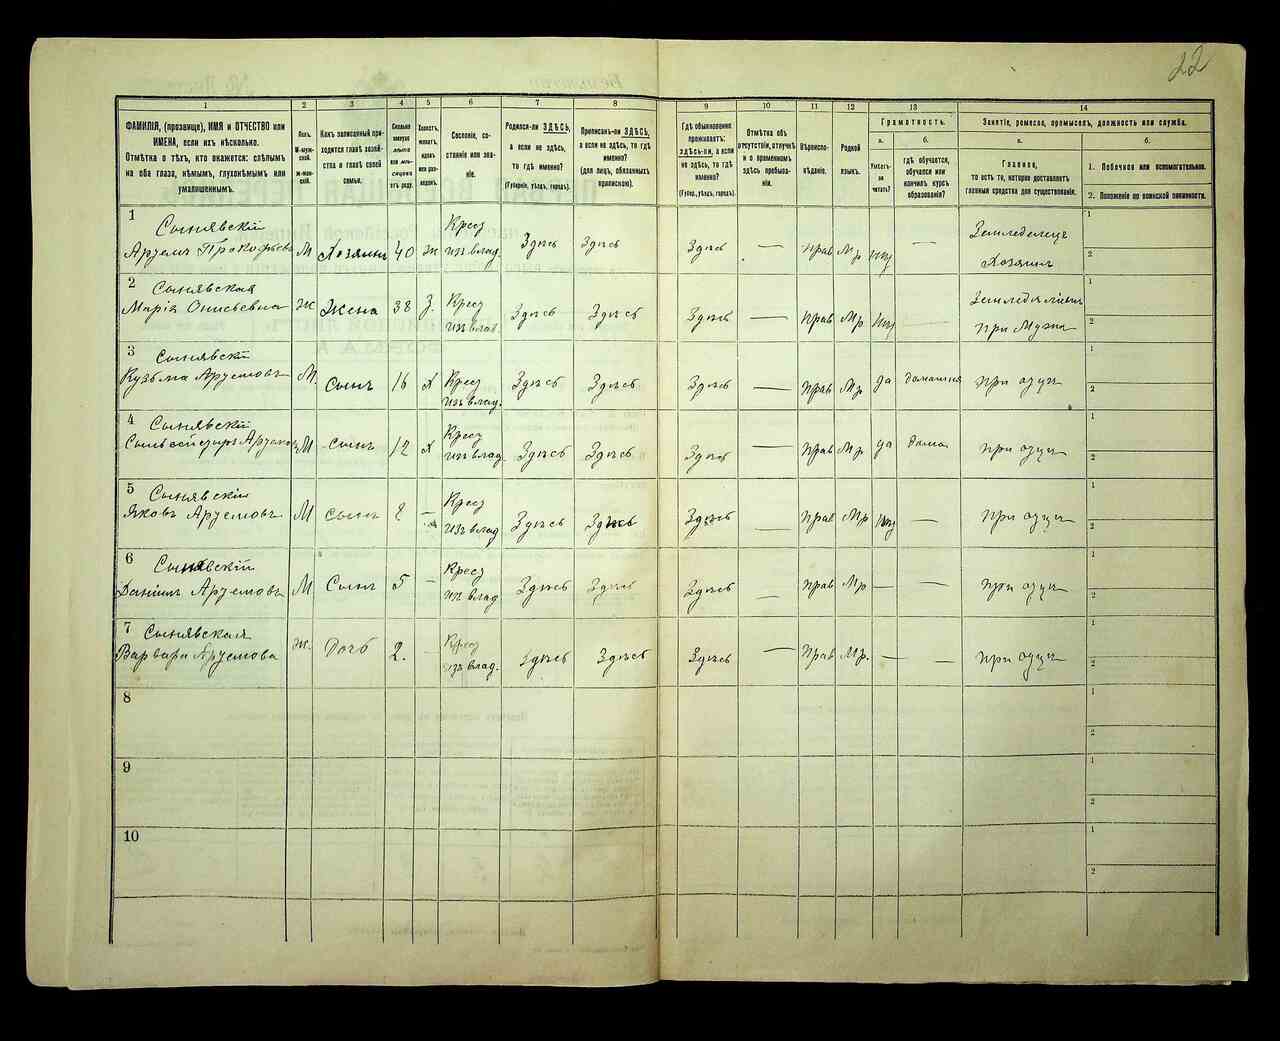 22
1
2
3
4
5
6
7
8
9
10
11
12
13
14
ФАМИЛІЯ, (прозвище), ИМЯ и ОТЧЕСТВО или
ИМЕНА, если ихъ нѣсколько.
Отмѣтка о тѣхъ, кто окажется: слѣпымъ
на оба глаза, нѣмымъ, глухонѣмымъ или
умалишеннымъ.
Полъ.
М-мужской.
ж-женскій.
Какъ записанный при-
ходится главѣ хозяй-
ства и главѣ своей
семьи.
Сколько
минуло
лѣтъ
или мѣ-
сяцевъ
отъ роду.
Холостъ,
женатъ,
вдовъ
или раз-
веденъ.
Сословіе, со-
стояніе или зва-
ніе.
Родился-ли ЗДѢСЬ,
а если не здѣсь,
то гдѣ именно?
(Губернія, уѣздъ, городъ).
Приписанъ-ли ЗДѢСЬ,
а если не здѣсь, то гдѣ
именно?
(для лицъ, обязанныхъ
припискою).
Гдѣ обыкновенно
проживаетъ:
здѣсь-ли, а если
не здѣсь, то гдѣ
именно?
(Губер., уѣздъ, городъ).
Отмѣтка объ
отсутствіи, отлучкѣ
и о временномъ
здѣсь пребыва-
ніи.
Вѣроиспо-
вѣданіе.
Родной
языкъ.
Грамотность.
а.
б.
Умѣетъ-
ли
читать?
гдѣ обучается,
обучался или
кончилъ курсъ
образованія?
Занятіе, ремесло, промыселъ, должность или служба.
а.
б.
Главное,
то есть то, которое доставляетъ
главныя средства для существованія.
1. Побочное или вспомогательное.
2. Положеніе по воинской повинности.
1
Сынявскій
Артемъ Прокофьевъ М Хозяинъ 40 ж Крест изъ влад. Здѣсь Здѣсь Здѣсь — Прав Мр нѣт — Земледелецъ Хозяинъ 1 2
2
Сынявская
Марія Онисьевна ж Жена 38 З. Крест изъ влад. Здѣсь Здѣсь Здѣсь — Прав Мр нѣт — при Мужѣ 1 2
3
Сынявскій
Кузьма Артемовъ М. Сынъ 16 Х Крест изъ влад. Здѣсь Здѣсь Здѣсь — Прав Мр да при отцѣ 1 2
4
Сынявскій
М Сынъ 12 х Крест изъ влад. Здѣсь Здѣсь Здѣсь — Прав Мр да дома при отцѣ 1 2
5
Сынявскій
Яковъ Артемовъ М Сынъ — Крест изъ влад Здѣсь Здѣсь Здѣсь — Прав Мр нѣт — при отцѣ 1 2
6
Сынявскій
Даніилъ Артемовъ М Сынъ 5 — Крест изъ влад Здѣсь Здѣсь Здѣсь — Прав Мр. — — при отцѣ 1 2
7
Сынявская
Варвара Артемова ж. Дочь 2. — Крест изъ влад. Здѣсь Здѣсь Здѣсь — Прав Мр. — — при отцѣ 1 2
8
1
2
9
1
2
10
1
2